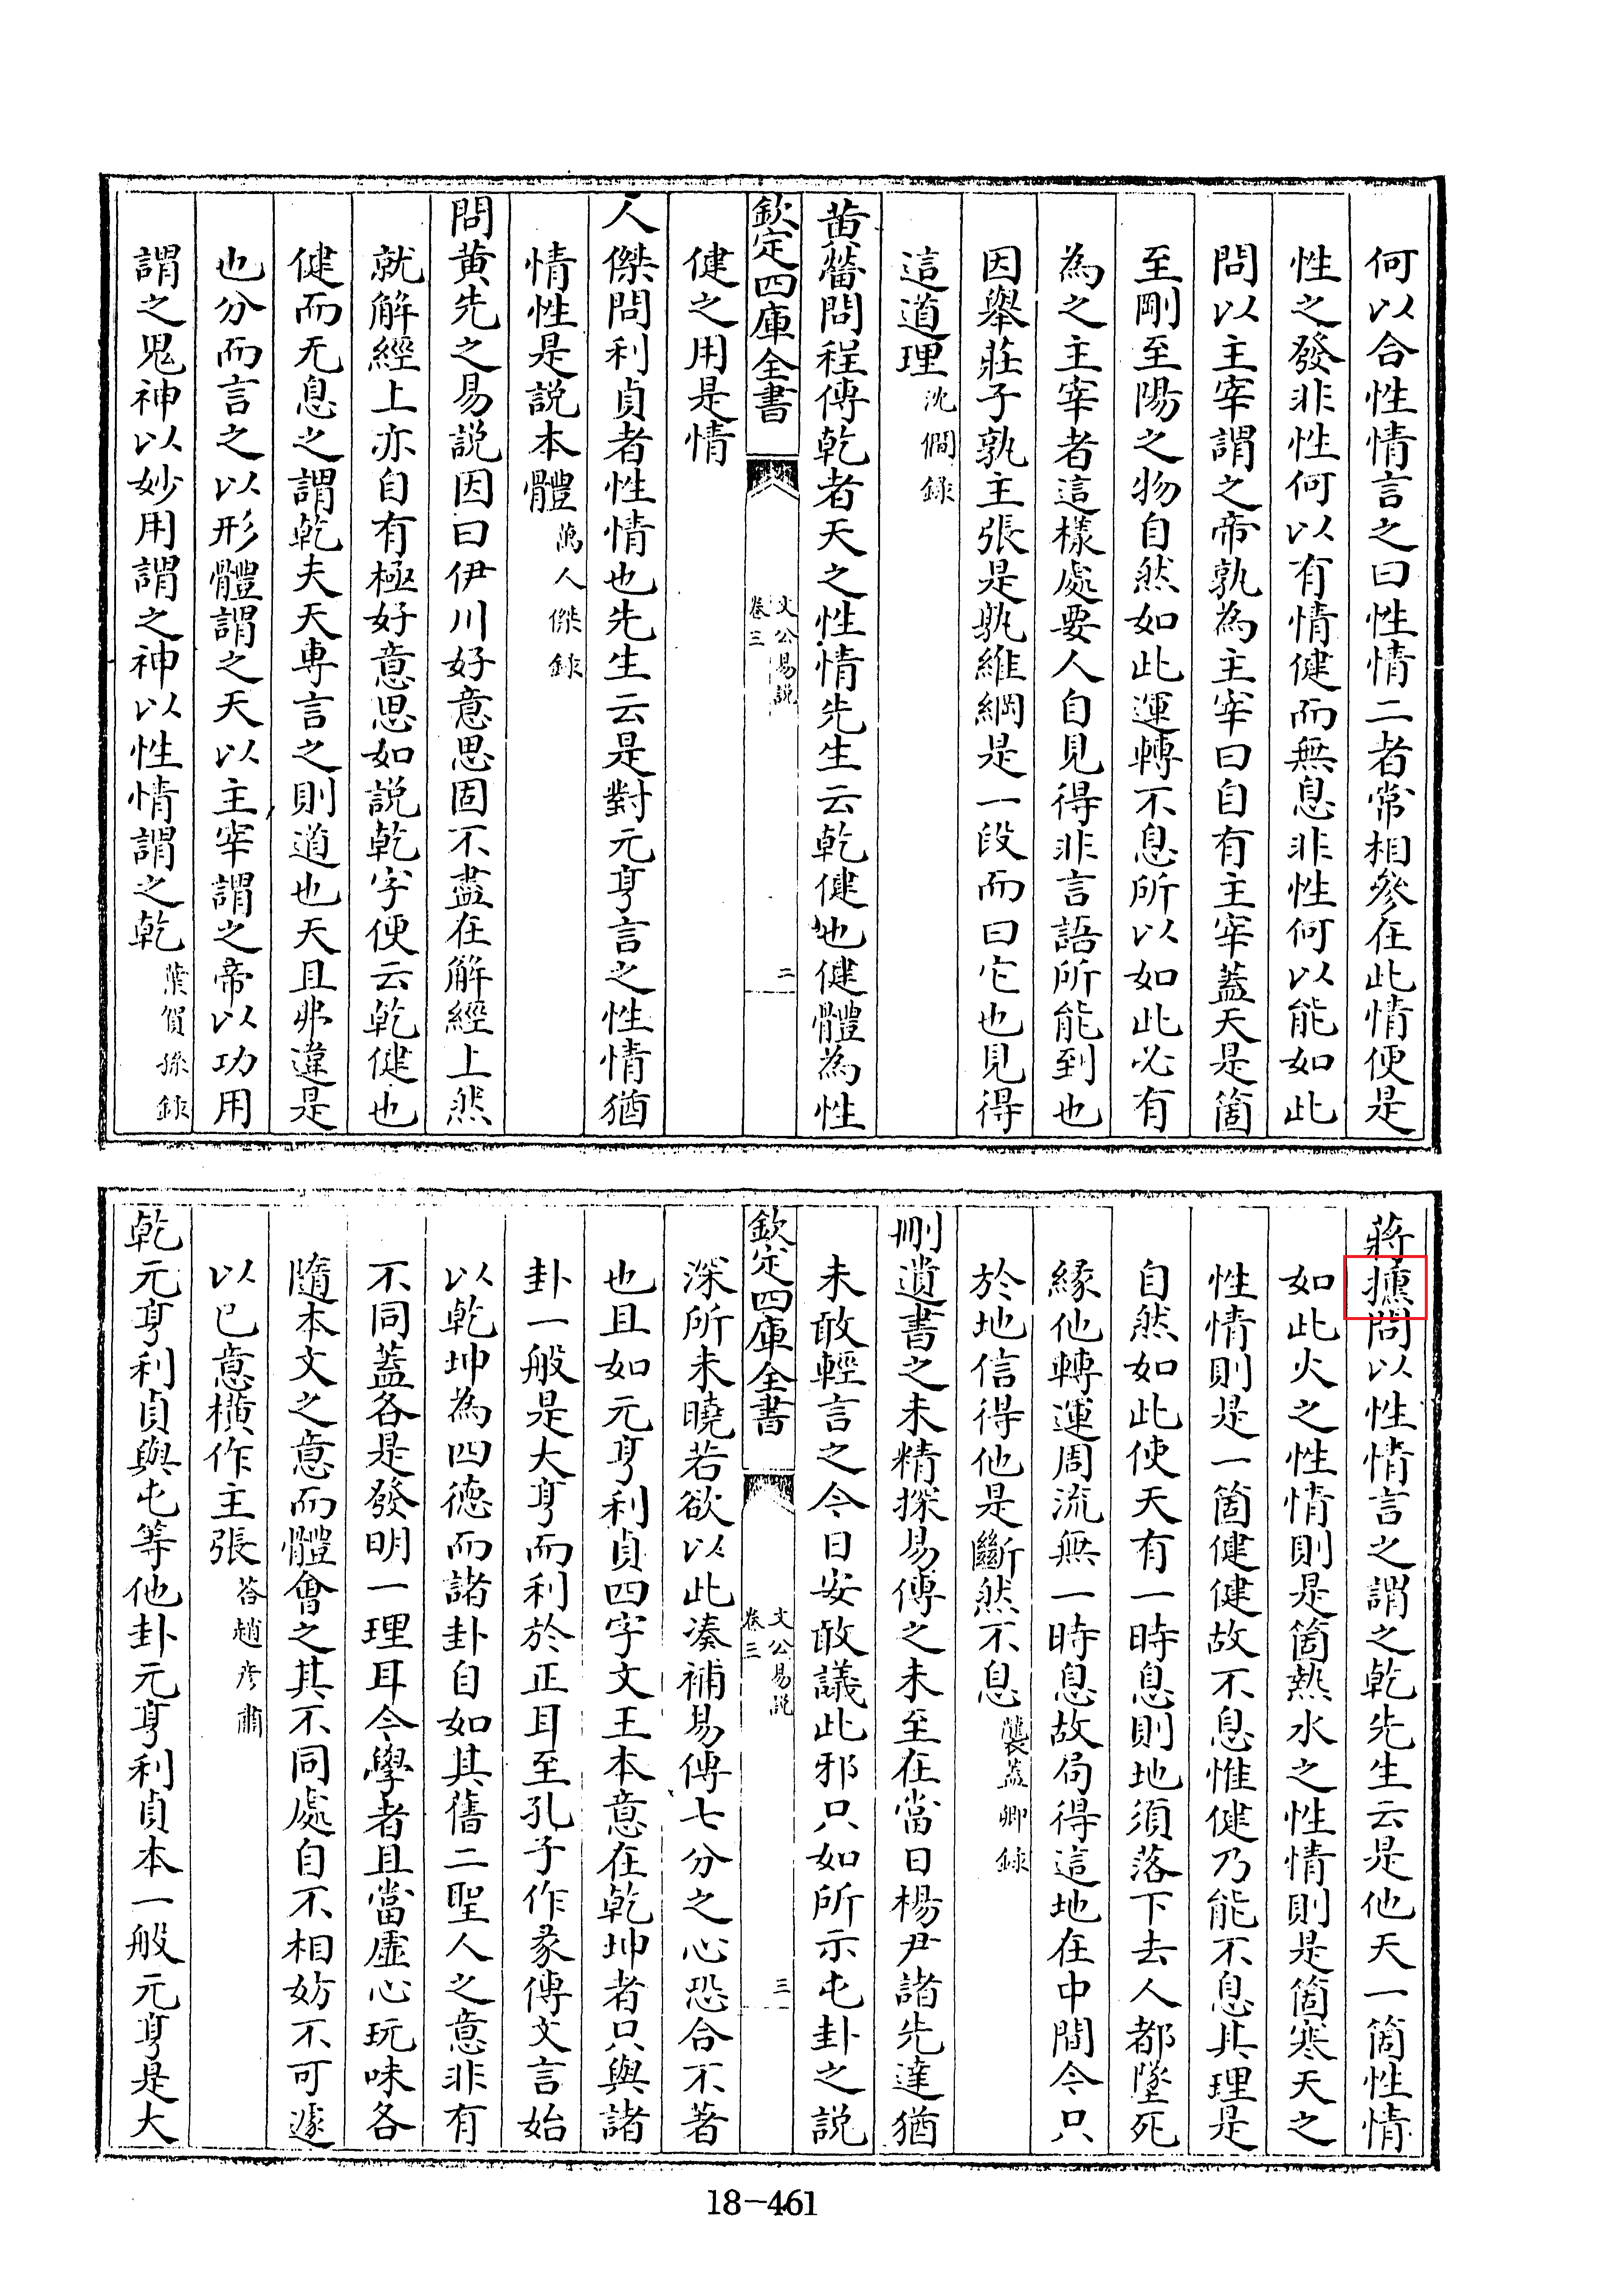 何以合性情言之曰性情二者常相參在此情便是
性之發非性何以有情健而無息非性何以能如此
問以主宰謂之帝孰為主宰曰自有主宰蓋天是箇
至剛至陽之物自然如此運轉不息所以如此必有
為之主宰者這樣處要人自見得非言語所能到也
因舉莊子孰主張是孰維綱是一段而曰它也見得
這道理沈僩録
黄問程傳乾者天之性情先生云乾健也健體為性
欽定四庫全書 文公易説 卷三 二
健之用是情
人傑問利貞者性情也先生云是對元亨言之性情猶
情性是説本體萬人傑録
問黄先之易説因曰伊川好意思固不盡在解經上然
就解經上亦自有極好意思如説乾字便云乾健也
健而无息之謂乾夫天專言之則道也天且弗違是
也分而言之以形體謂之天以主宰謂之帝以功用
謂之鬼神以妙用謂之神以性情謂之乾葉賀孫録
蔣問以性情言之謂之乾先生云是他天一箇性情
如此火之性情則是箇熱水之性情則是箇寒天之
性情則是一箇健健故不息惟健乃能不息其理是
自然如此使天有一時息則地須落下去人都墜死
緣他轉運周流無一時息故局得這地在中間今只
於地信得他是斷然不息龔蓋卿録
刪遺書之未精探易傳之未至在當日楊尹諸先達猶
未敢輕言之今日安敢議此邪只如所示屯卦之説
欽定四庫全書 文公易説 卷三 三
深所未曉若欲以此湊補易傳七分之心恐合不著
也且如元亨利貞四字文王本意在乾坤者只與諸
卦一般是大亨而利於正耳至孔子作彖傳文言始
以乾坤為四徳而諸卦自如其舊二聖人之意非有
不同蓋各是發明一理耳今學者且當虛心玩味各
隨本文之意而體會之其不同處自不相妨不可遽
以已意橫作主張答趙彦肅
乾元亨利貞與屯等他卦元亨利貞本一般元亨是大
18-461